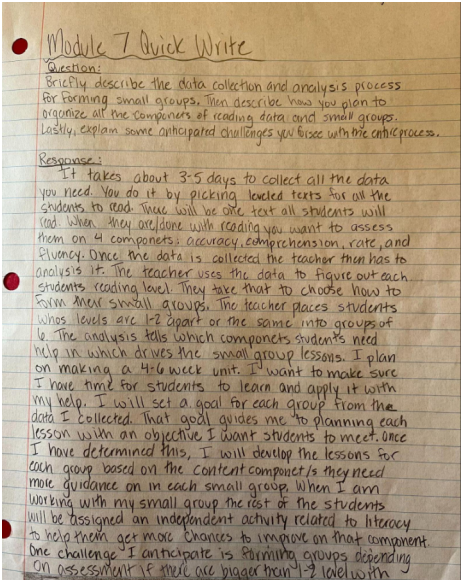 Module 7 Quick Write
Question:
Briefly describe the data collection and analysis process
for forming small groups. Then describe how you plan to
organize all the componets of reading data and small groups.
Lastly, explain some anticipated challenges you forsee with the entire process.
Response:
It takes about 3-5 days to collect all the data
you need. You do it by picking leveled texts for all the
students to read. There will be one text all students will
read. When they are done with reading you want to assess
them on 4 componets: accuracy, comprehension, rate, and
fluency. Once the data is collected the teacher then has to
analysis it. The teacher uses the data to figure out each
students reading level. They take that to choose how to
form their small groups. The teacher places students
whos levels are 1-2 apart or the same into groups of
6. The analysis tells which componets students need
help in which drives the small group lessons. I plan
on making a 4-6 week unit. I want to make sure
I have time for students to learn and apply it with
my help. I will set a goal for each group from the
data I collected. That goal guides me to planning each
lesson with an objective I want students to meet. Once
I have determined this, I will develop the lessons for
each group based on the content componet/s they need
more guidance on in each small group. When I am
working with my small group the rest of the students
will be assigned an independent activity related to literacy
to help them get more chances to improve on that component.
One challenge I anticipate is forming groups depending
on assessment if there are bigger than 1-2 level with